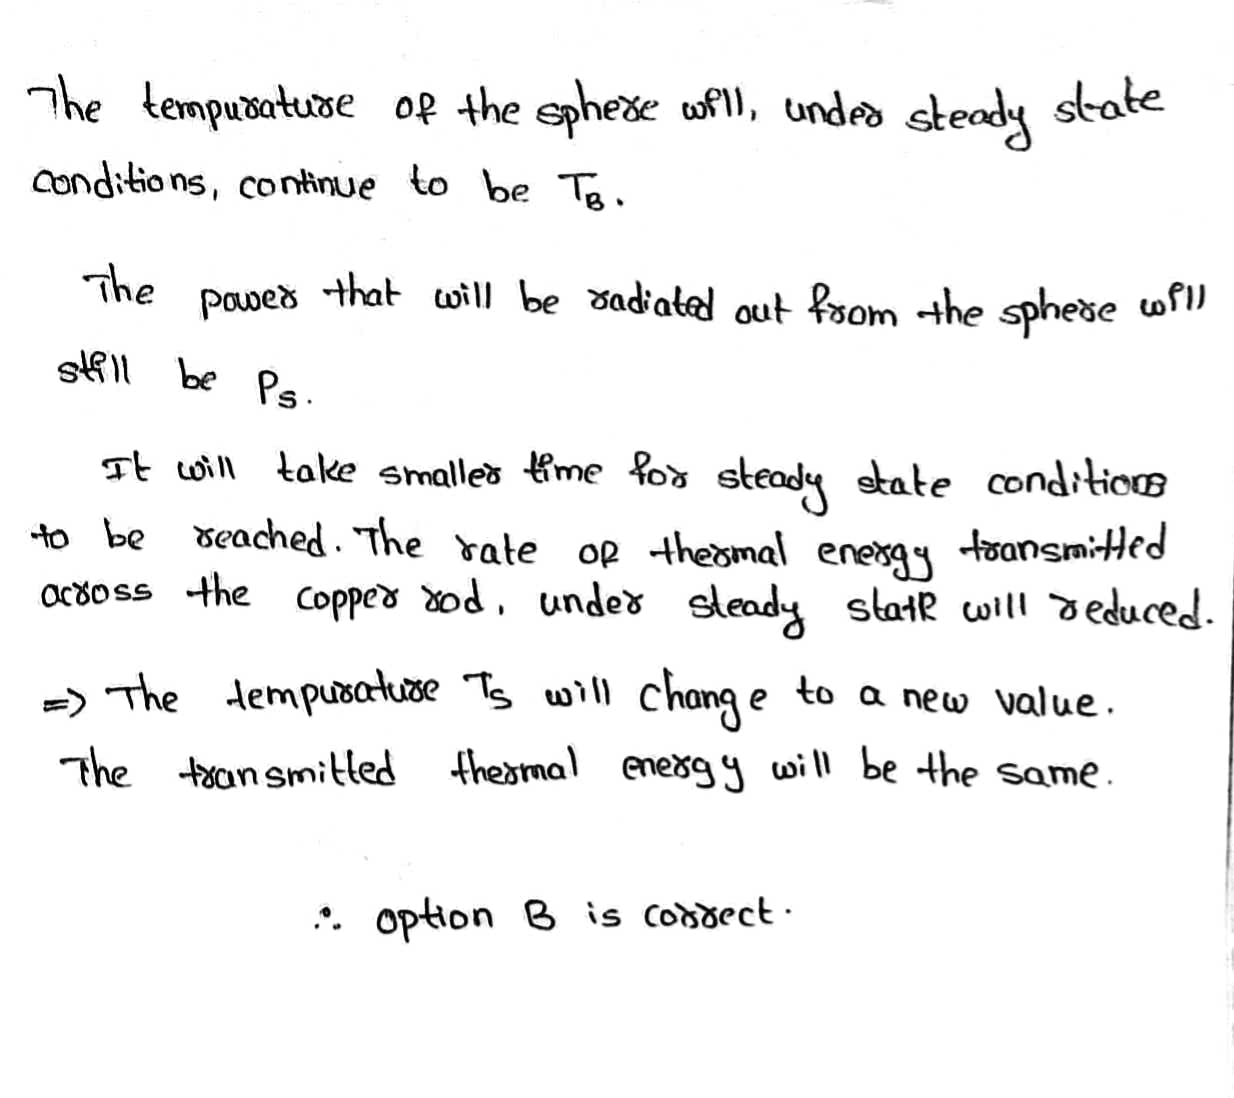 The tempurature of the sphere will, under steady state
conditions, continue to be T_B.
The power that will be radiated out from the sphere will
still be P_S.
It will take smaller time for steady state conditions
to be reached. The rate of thermal energy transmitted
across the copper rod, under steady state will reduced.
=> The tempurature T_S will change to a new value.
The transmitted thermal energy will be the same.
∴ option B is correct.